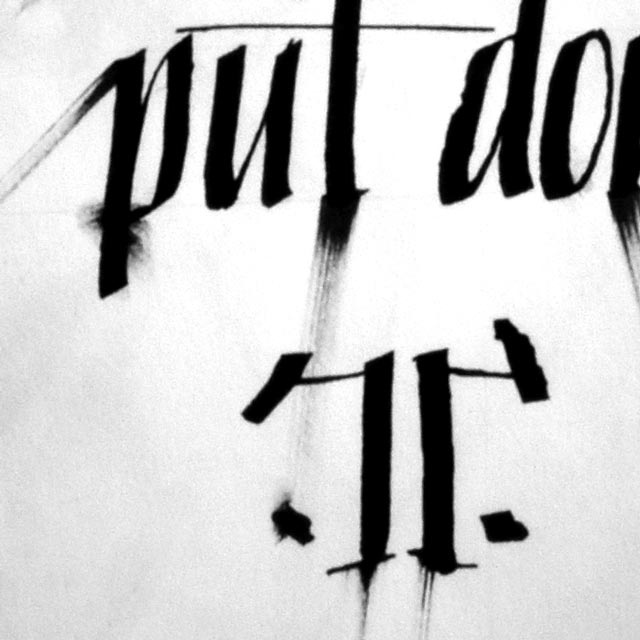 put do